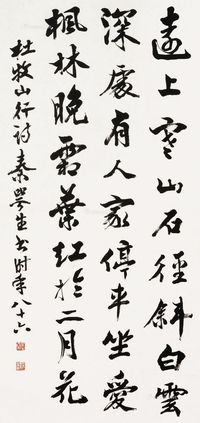 遠上寒山石徑斜白雲
深處有人家停車坐愛
楓林晚霜葉紅於二月花
杜牧山行詩秦咢生書時年八十六